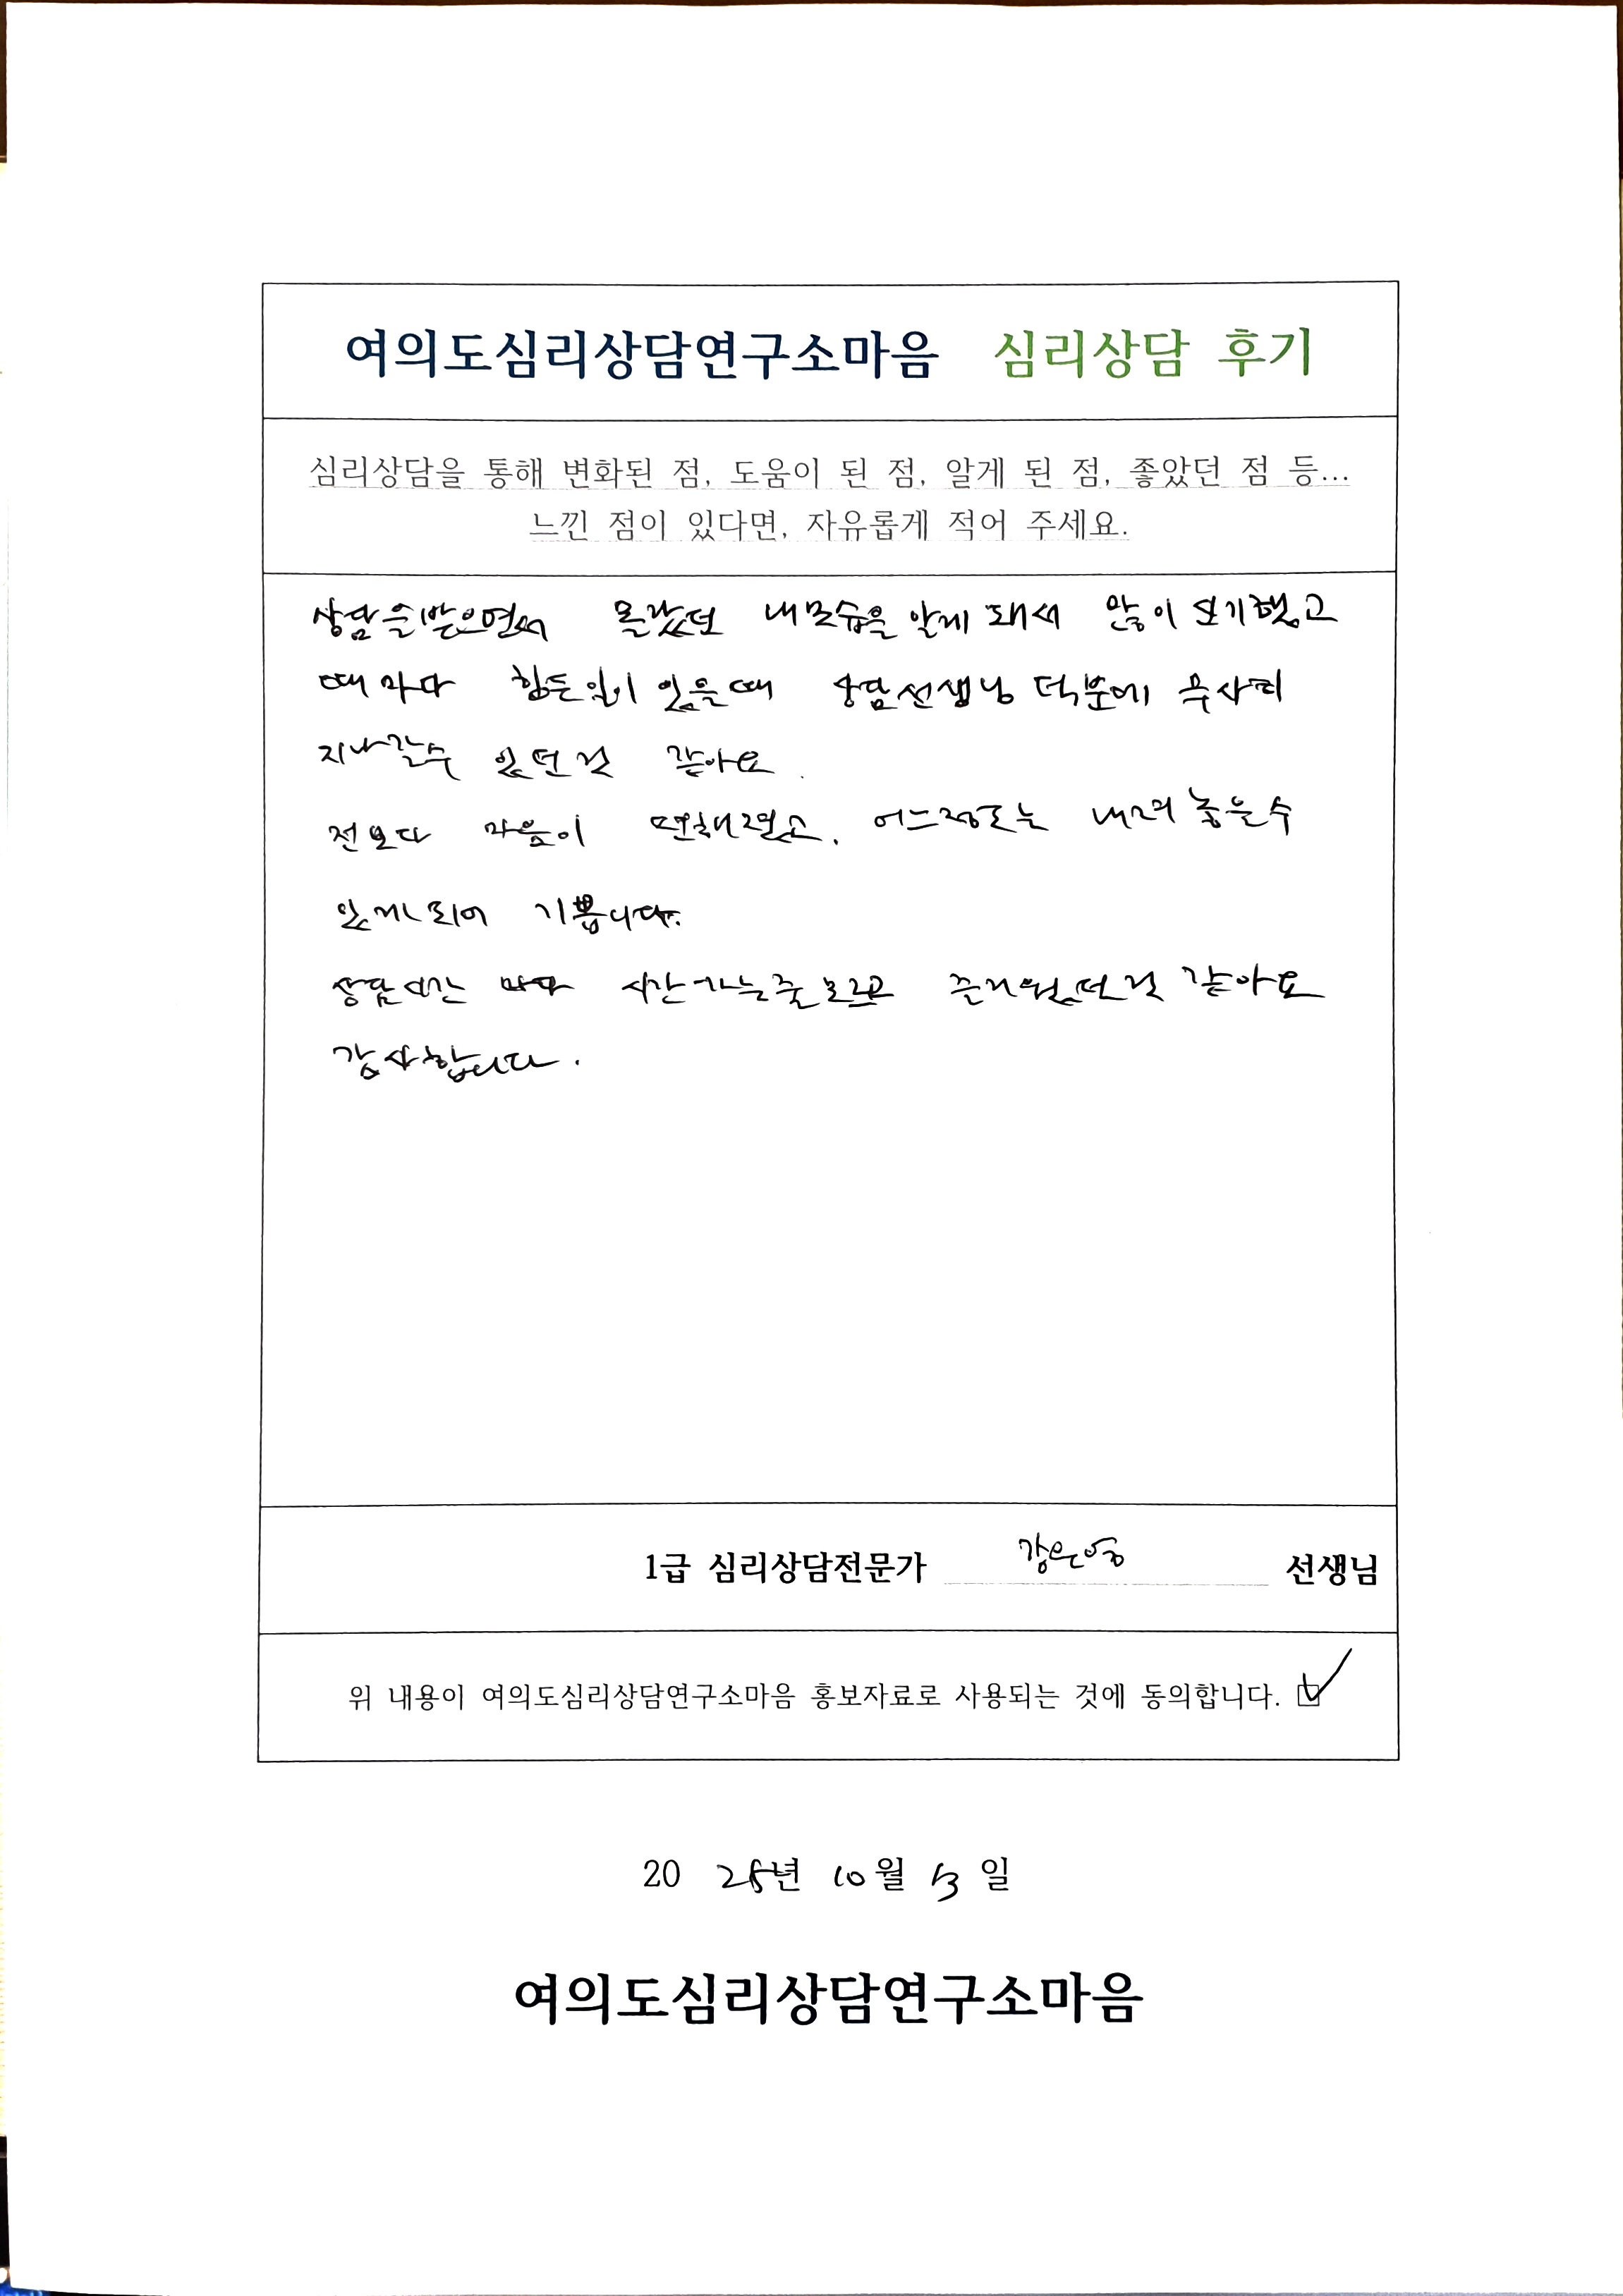 여의도심리상담연구소마음 심리상담 후기
심리상담을 통해 변화된 점, 도움이 된 점, 알게 된 점, 좋았던 점 등...
느낀 점이 있다면, 자유롭게 적어 주세요.
상담을 받으면서 몰랐던 내모습을 알게 돼서 많이 신기했고
때마다 힘든일이 있을때 상담선생님 덕분에 무사히
지나갈수 있던것 같아요.
전보다 마음이 편해졌고, 어느정도는 내려놓을수
있게되어 기쁩니다.
상담시간 마다 시간가는줄 모르고 즐거웠던것 같아요
감사합니다.
1급 심리상담전문가 선생님
위 내용이 여의도심리상담연구소마음 홍보자료로 사용되는 것에 동의합니다.
20 25년 10월 13일
여의도심리상담연구소마음